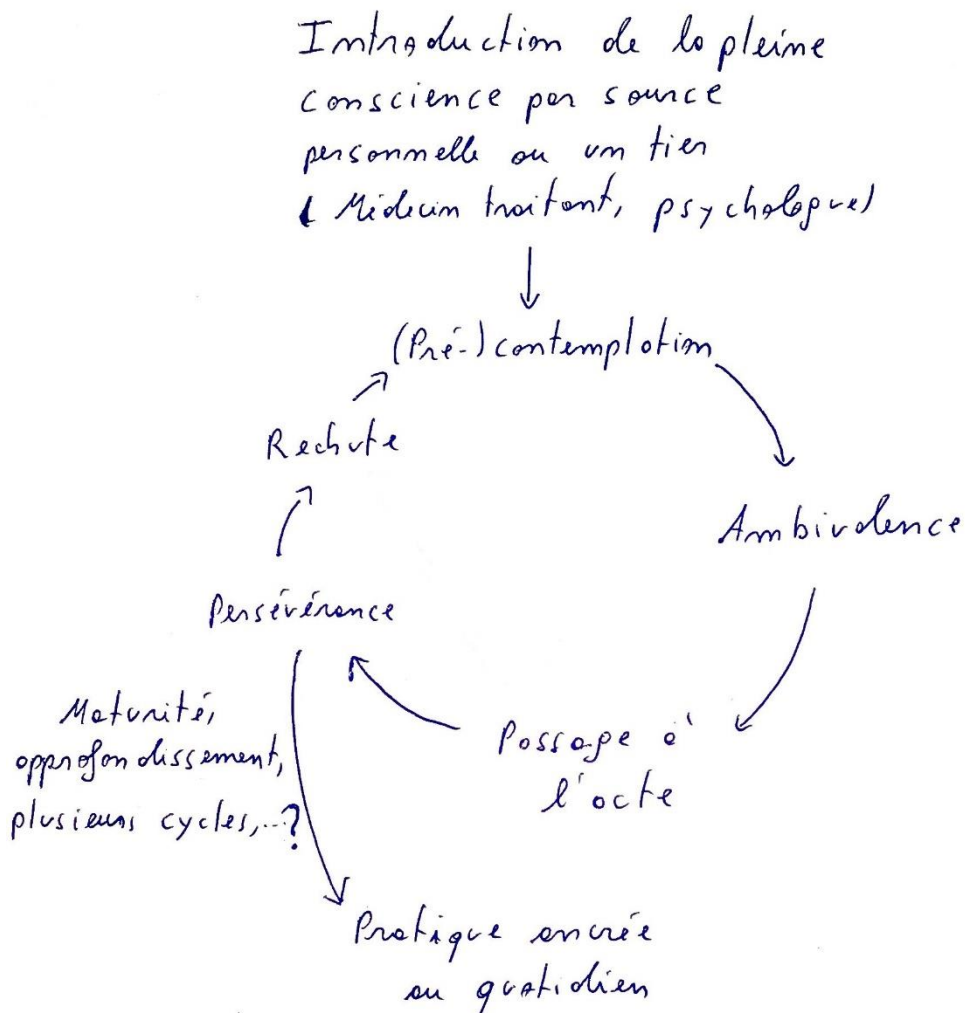 Introduction de la pleine
conscience par source
personnelle ou un tier
(Médecin traitant, psychologue)
(Pré-)contemplation
Rechute
Ambivalence
Persévérance
Maturité,
approfondissement,
plusieurs cycles,...?
Passage à
l'acte
Pratique ancrée
au quotidien